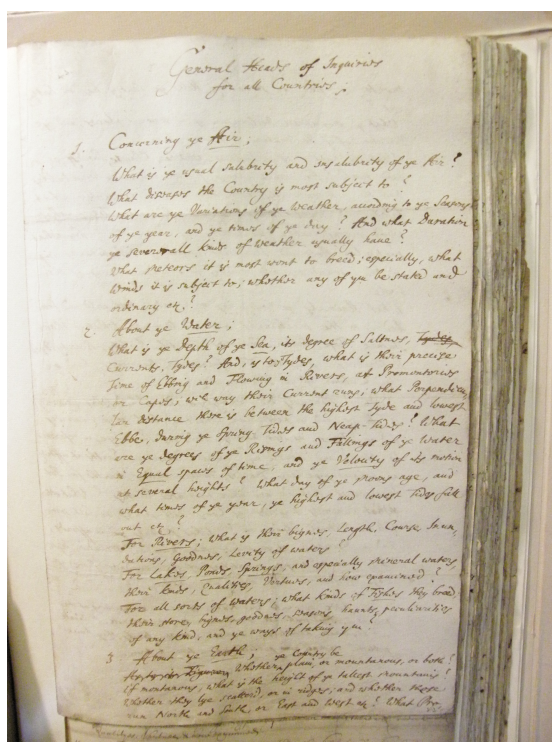 General Heads of Inquiries
for all Countries;
1. Concerning ye Air;
What is ye usual salubrity and insalubrity of ye Air?
What diseases the Country is most subject to?
What are ye Variations of ye Weather, according to ye Seasons
of ye year, and ye times of ye day? And what Duration
ye severall kinds of weather usually have?
What meteors it is most wont to breed; especially, what
Winds it is subject to; whether any of ym be stated and
ordinary etc?
2. About ye Water;
What is ye Depth of ye Sea, its degree of Saltnes, Tydes,
Currents, Tydes? And, as to Tydes, what is their precise
Time of Ebbing and Flowing in Rivers, at Promontories
or Capes; wch way their Current runs, what Perpendicu-
lar distance there is between the highest Tyde and lowest
Ebbe, during ye Spring Tides and Neap-Tides? What
are ye degrees of ye Risings and Fallings of ye Water
in Equal spaces of time, and ye Velocity of its motion
at several heights? What day of ye moons age, and
what times of ye year, ye highest and lowest Tides fall
out etc?
For Rivers; what is their bignes, Length, Course, Inun-
dations, Goodnes, Levity of waters?
For Lakes, Ponds, Springs, and especially mineral waters,
their kinds, Qualities, Vertues, and how examined?
For all sorts of Waters; what kinds of Fishes they breed,
their store, bignes, goodnes, seasons, haunts, peculiarities
of any kind, and ye ways of taking ym?
3 About ye Earth; ye Country be
Whether plain, or mountanous, or both?
If montanous, what is the height of ye tallest mountains?
Whether they lye scatterd, or in ridges; and whether those
run North and South, or East and West etc? What Pro-